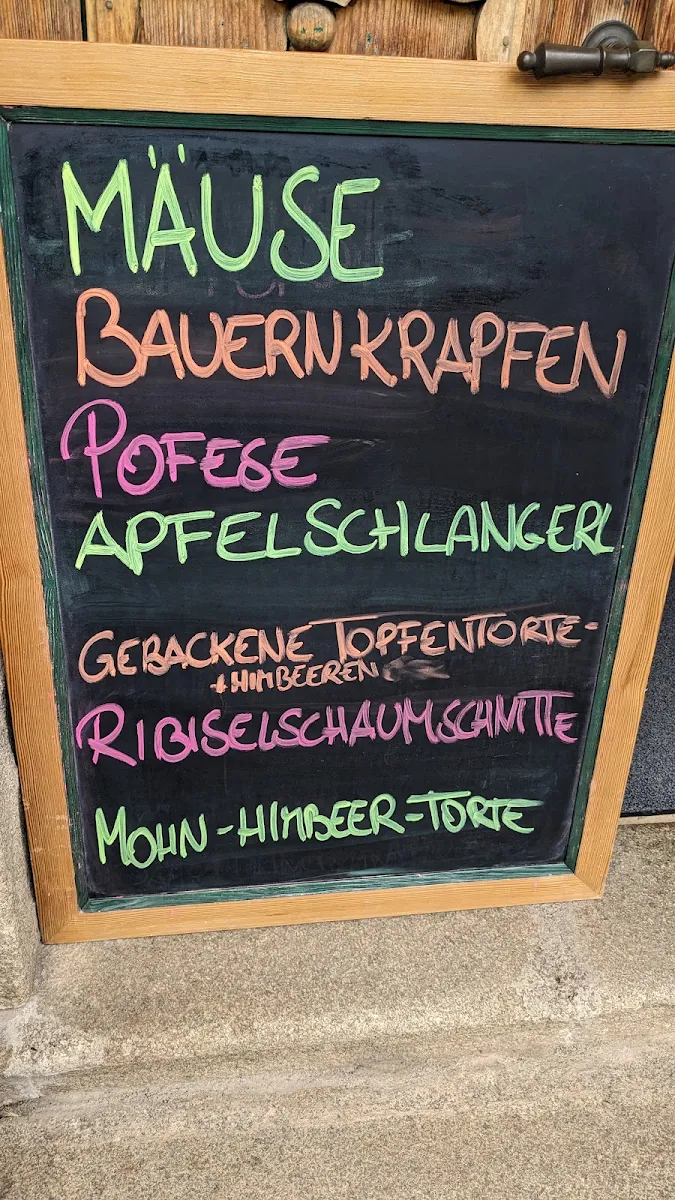 MÄUSE
BAUERNKRAPFEN
POFESE
APFELSCHLANGERL
GEBACKENE TOPFENTORTE-
+HIMBEEREN
RIBISELSCHAUMSCHNITTE
MOHN-HIMBEER-TORTE